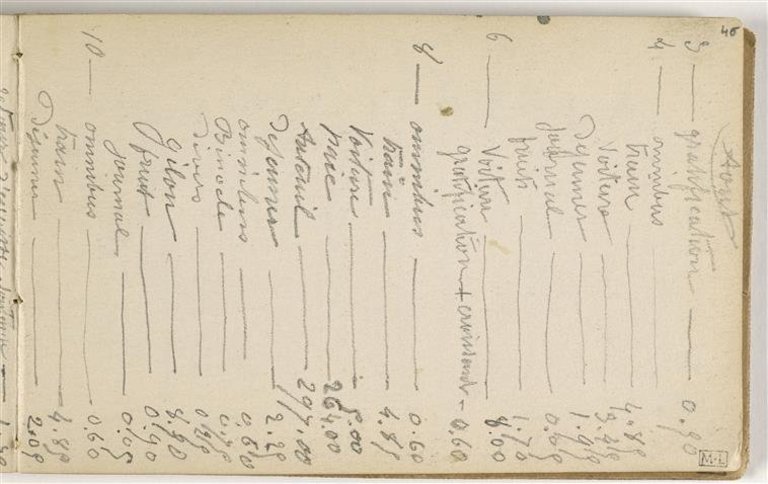 46
Août
3 — gratification — 0.90
4 — omnibus
train — 4.85
Voiture — 3.25
Déjeuner — 1.95
Journal — 0.05
fruits — 1.70
6 — Voiture — 8.00
gratification + croissant - 0.60
8 — omnibus — 0.60
train — 4.85
Voiture — 5.00
264.00
Auteuil — 297.00
Déjeuner — 2.25
omnibus — 0.60
Divers
Gilon — 8.90
fruit — 0.90
journal — 0.05
10 — omnibus — 0.60
train — 4.85
Déjeuner — 2.05
M-L